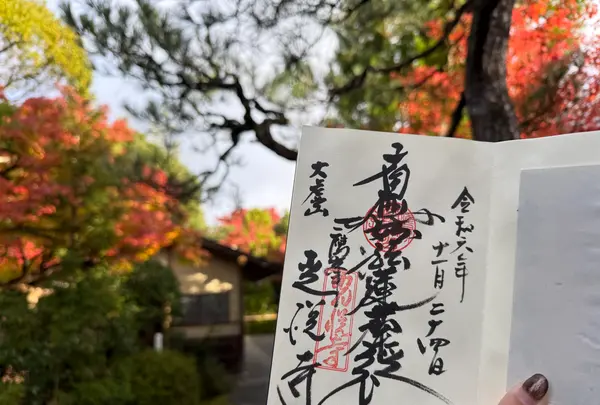 令和六年
十一月二十四日
南無妙法蓮華経
大虚山
光悦寺